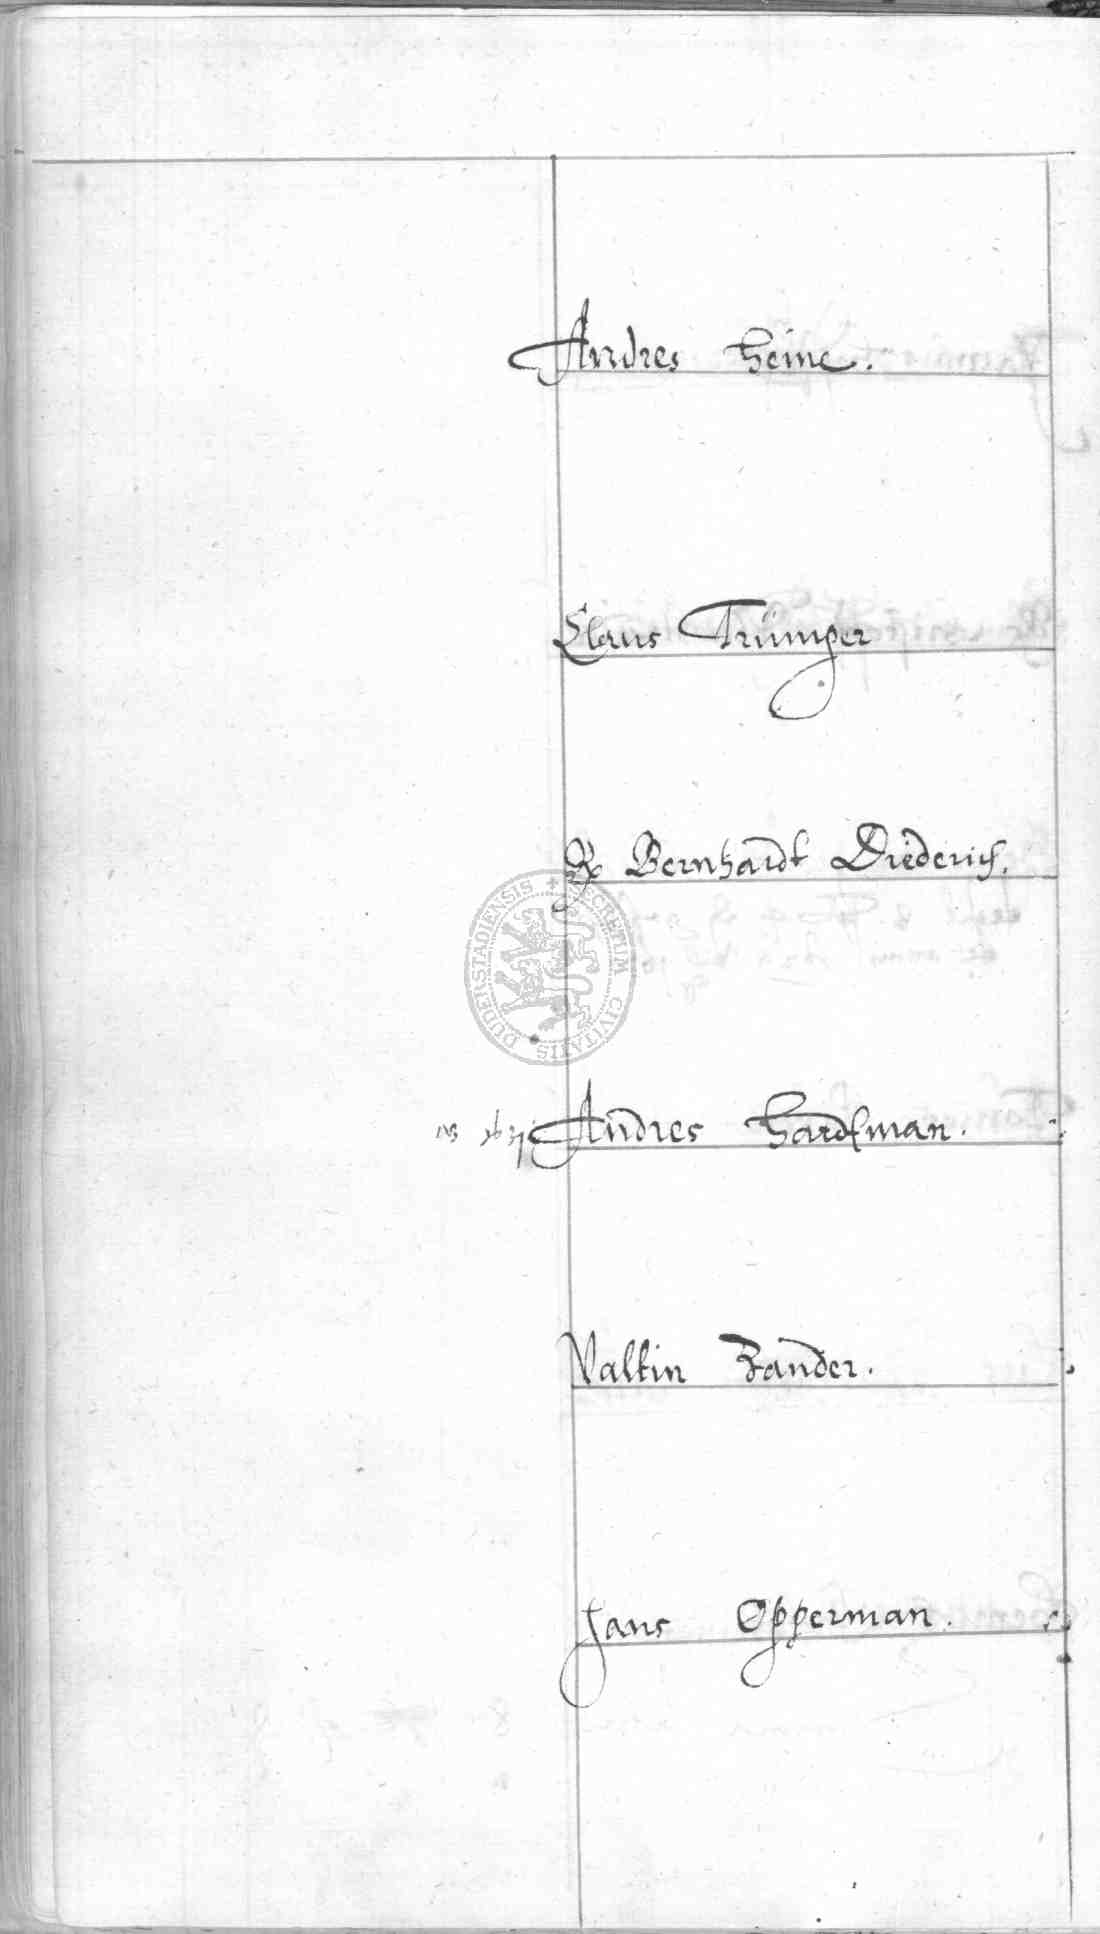 Andres Heine.
Claus Trümper
Bernhardt Diederich.
Andres Hardtman.
Valtin Zander.
Hans Opperman.
SECRETUM CIVITATIS DUDERSTADIENSIS